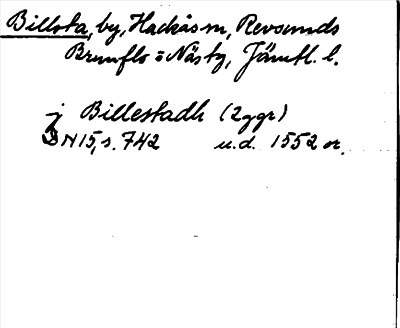 Billsta, by, Hackås sn, Revsunds
Brunflo o Näs tg, Jämtl. l.
j Billestadh (2 ggr)
DN 15, s. 742 u.d. 1552 or.